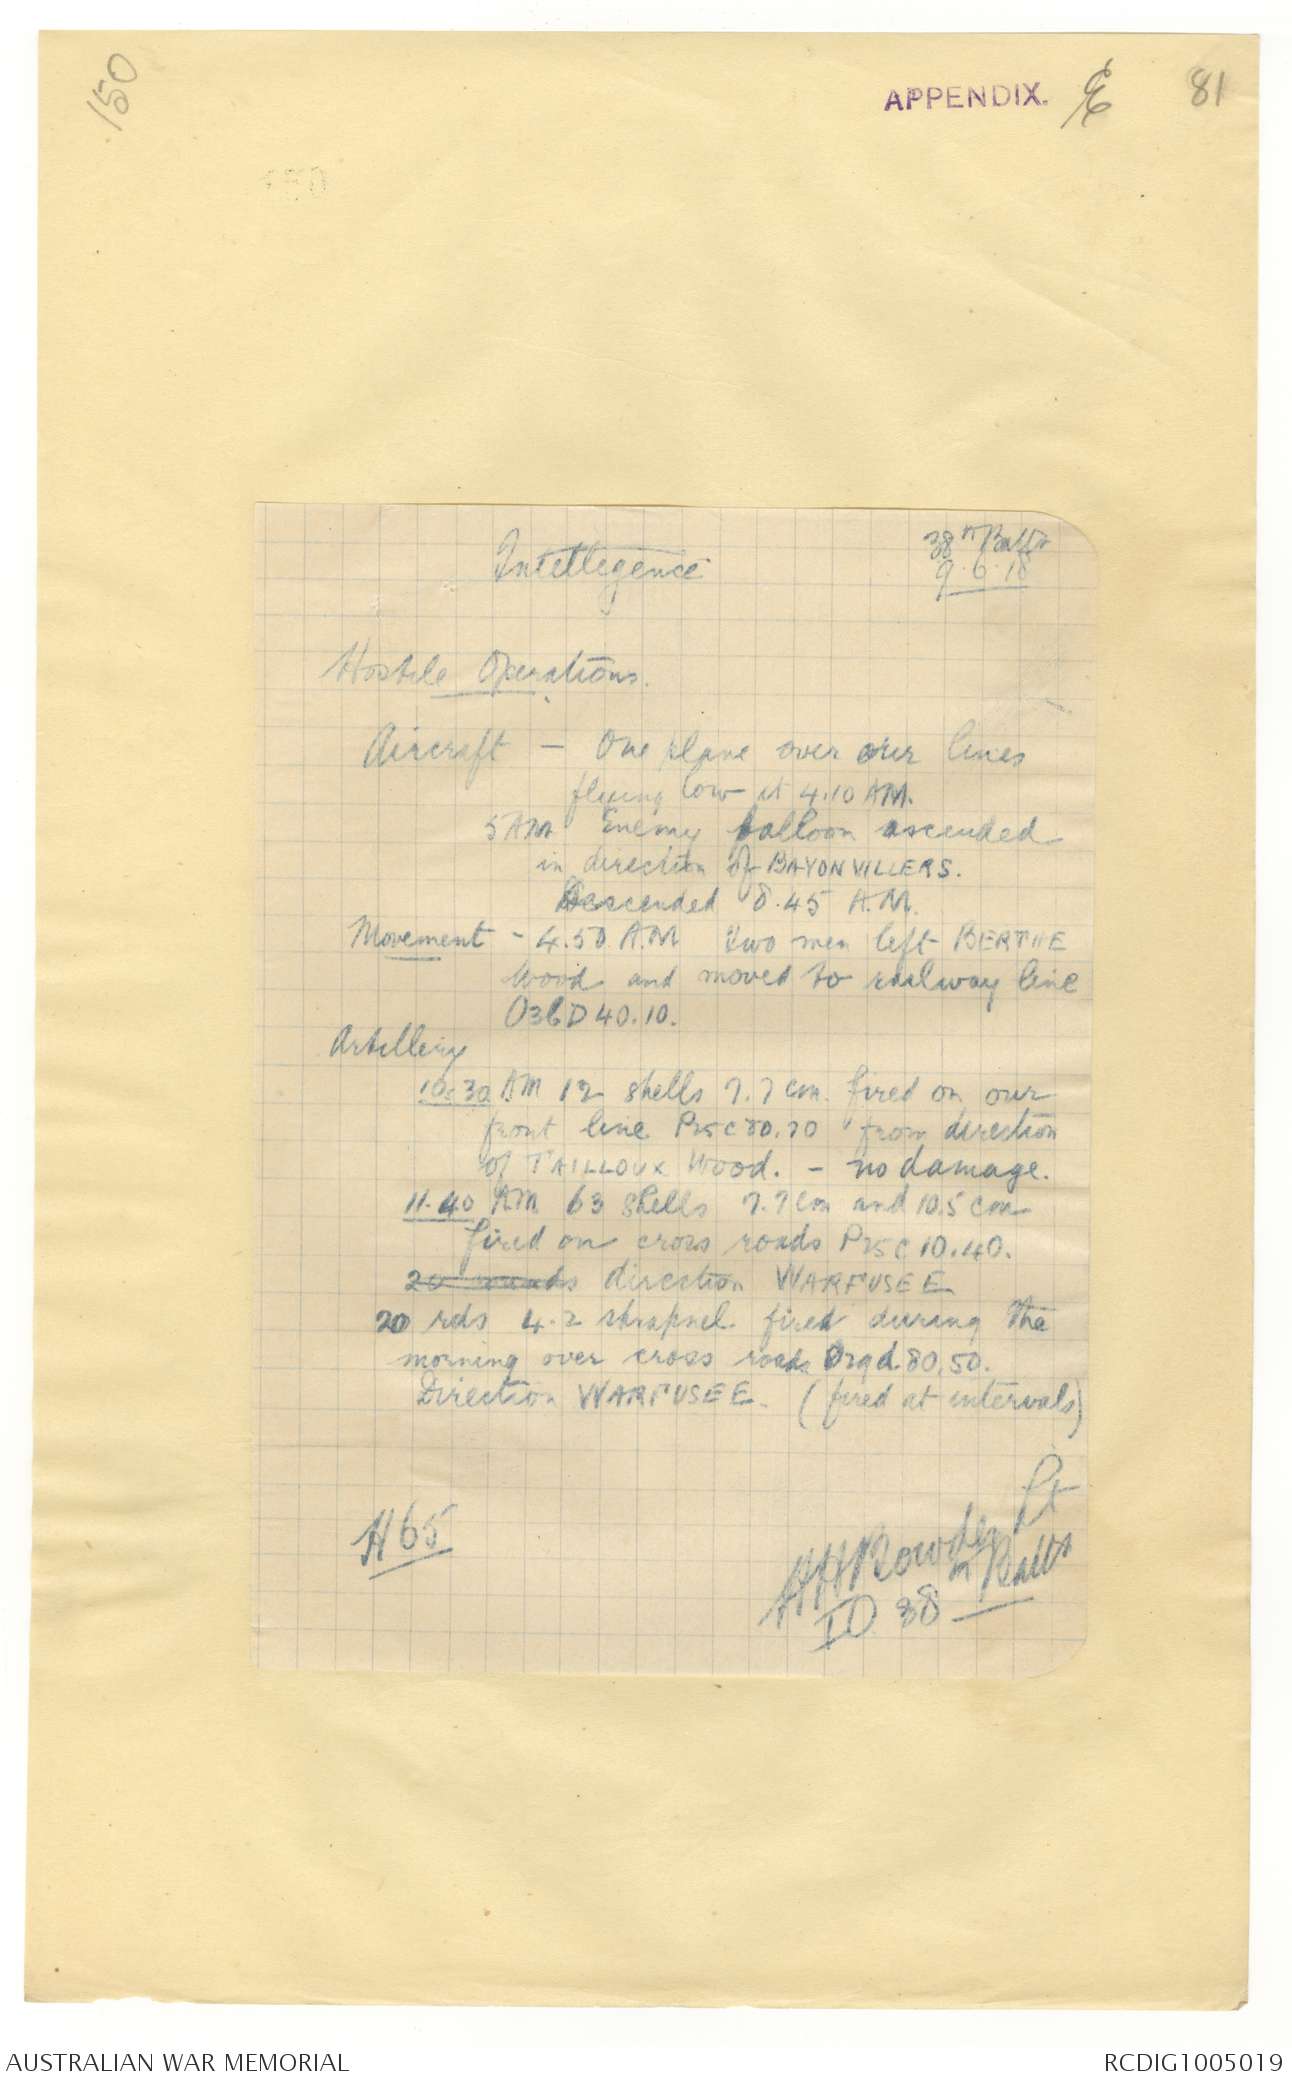 150
APPENDIX. E 81
38th Battn
9.6.18
Intellegence
Hostile Operations.
Aircraft - One plane over our lines
flying low at 4.10 AM.
5 AM Enemy balloon ascended
in direction of BAYONVILLERS.
Descended 8.45 A.M.
Movement - 4.50 A.M two men left BERTHE
Wood and moved to railway line
O36D40.10.
Artillery
10.30 AM 12 shells 7.7 cm. fired on our
front line P25C80.70 from direction
of TAILLOUX Wood. - no damage.
11.40 AM 63 shells 7.7 cm and 10.5 cm
fired on cross roads P25C10.40.
20 rounds direction WARFUSEE
20 rds 4.2 shrapnel fired during the
morning over cross roads O29d.80.50.
Direction WARFUSEE. (fired at intervals)
H65
HHRowden Lt
IO 38th Battn
AUSTRALIAN WAR MEMORIAL
RCDIG1005019